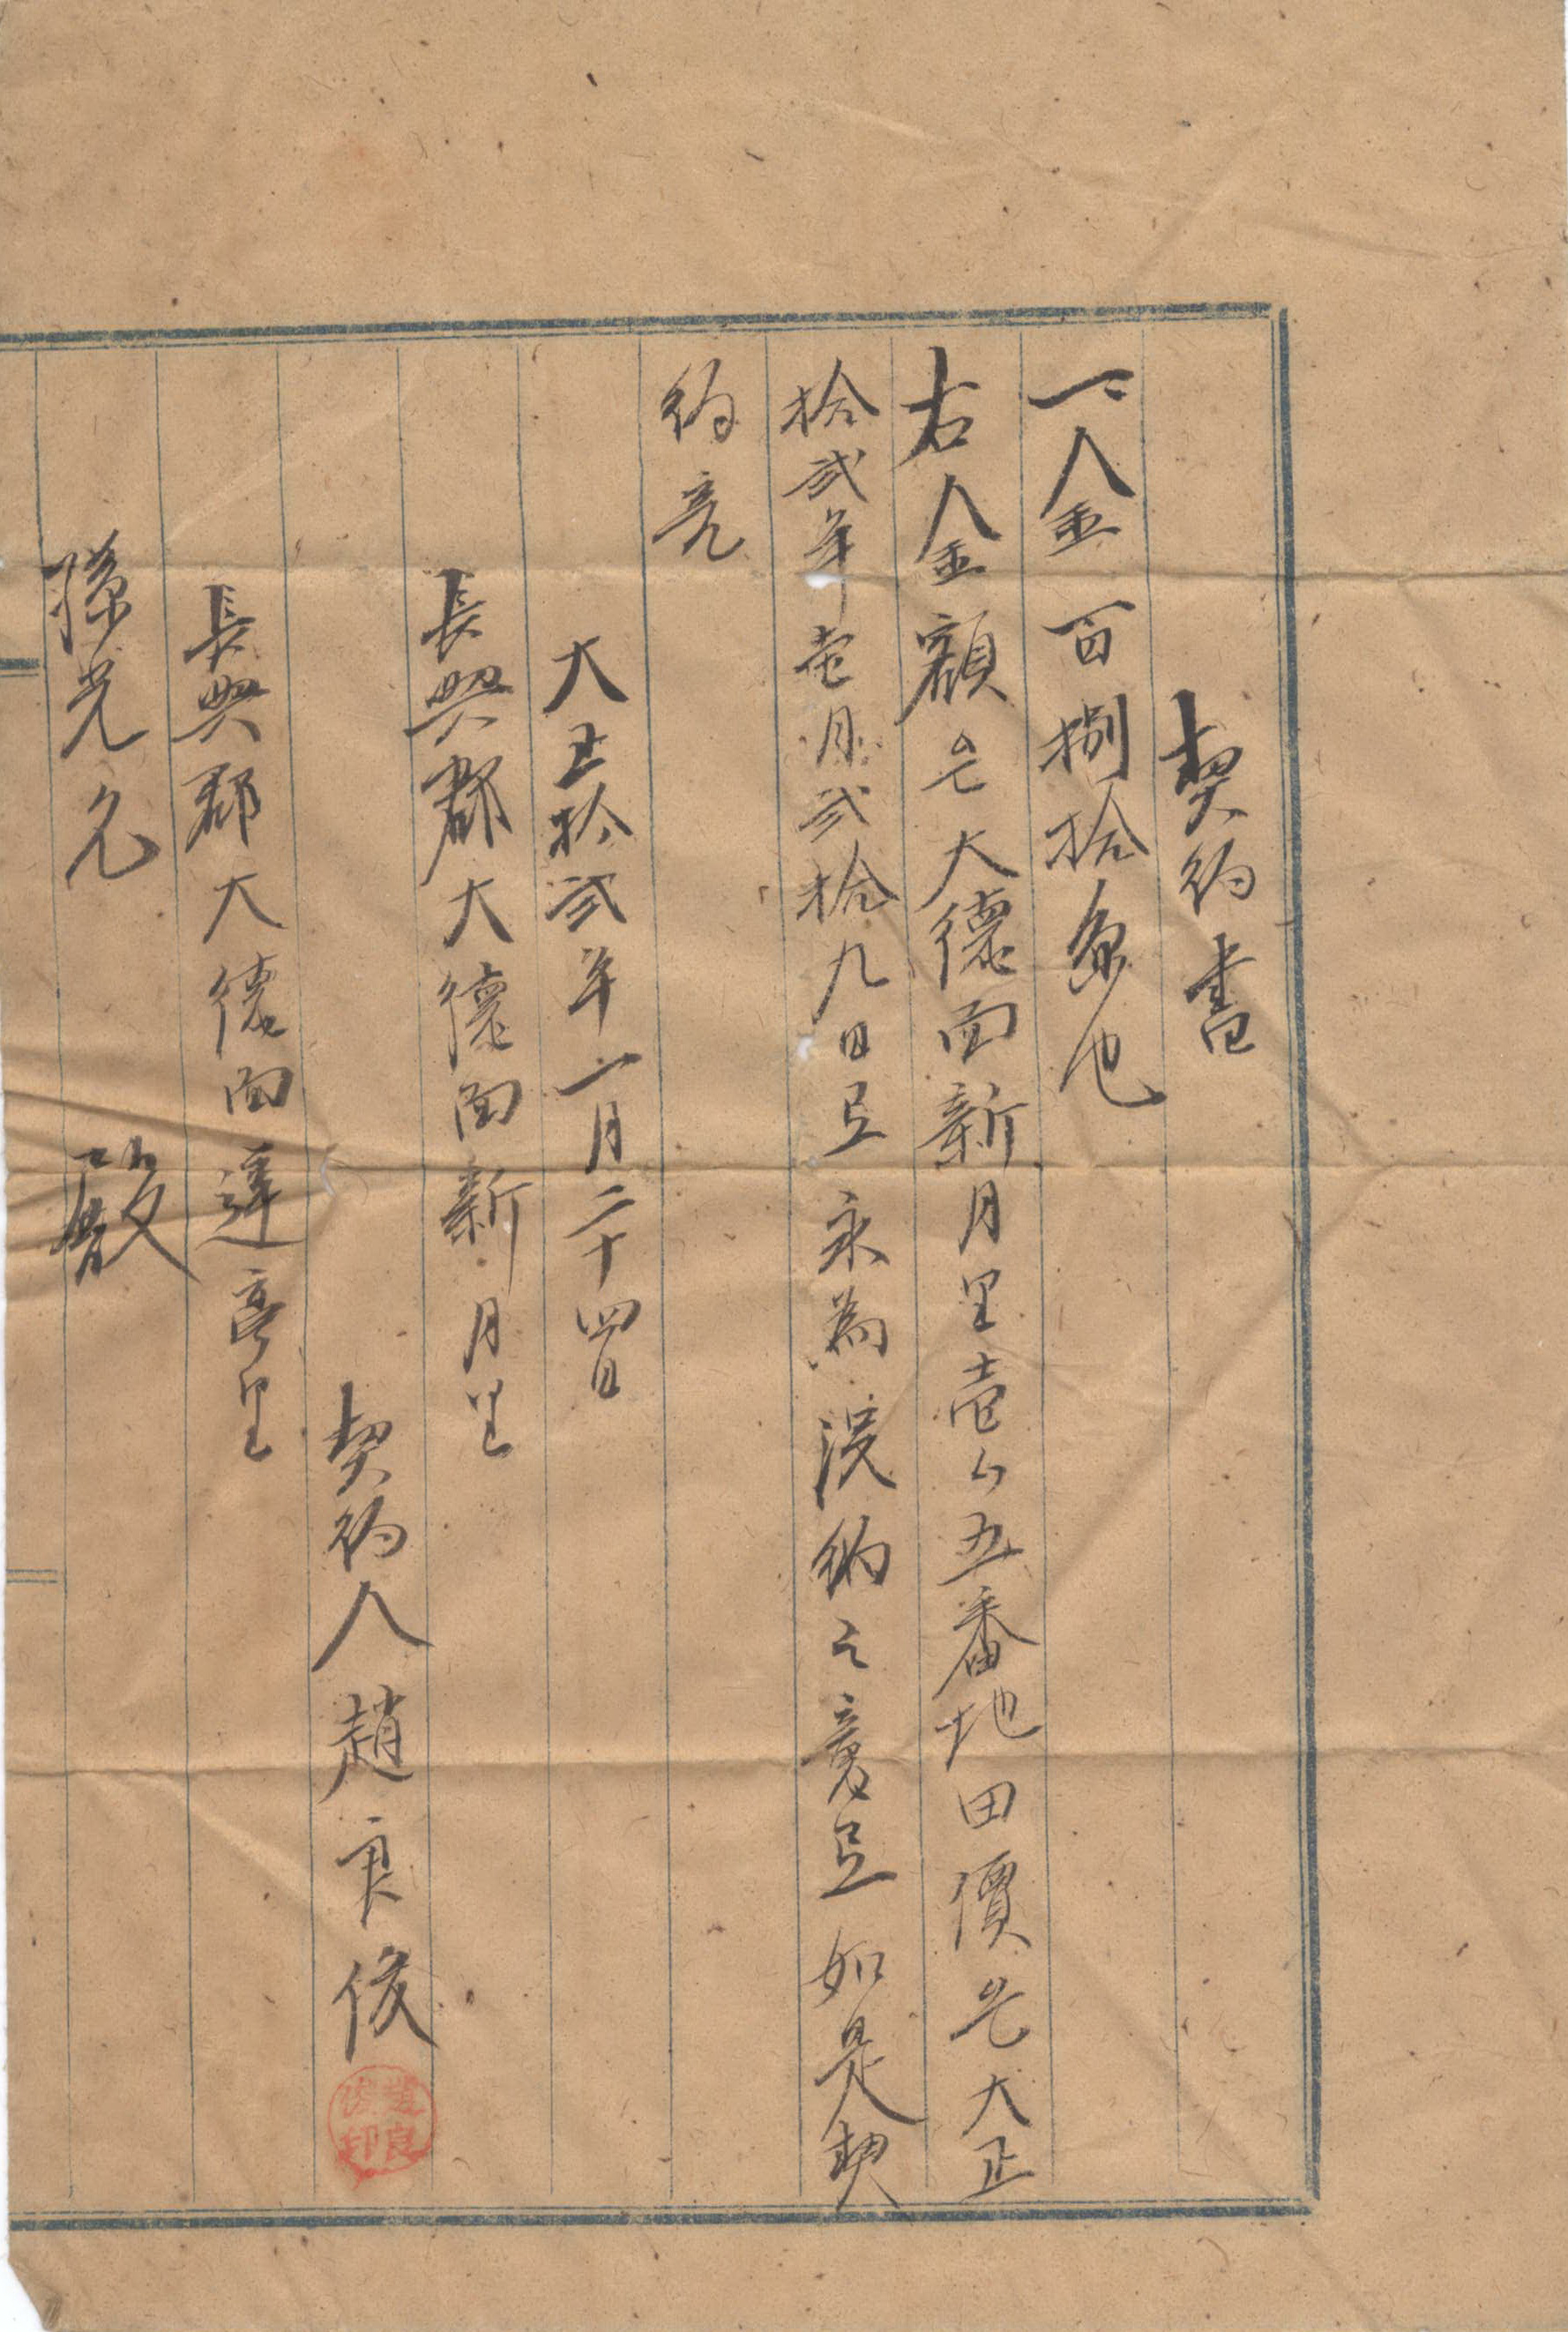 契約書
一金百捌拾負也
右金額은大德面新月里壹八五番地田價은大正
拾貳年壹月貳拾九日로永為没納之意로如是契
約홈
大正拾貳年一月二十四日
長興郡大德面新月里
契約人趙良俊
長興郡大德面蓮亭里
孫光允 殿
趙良俊印